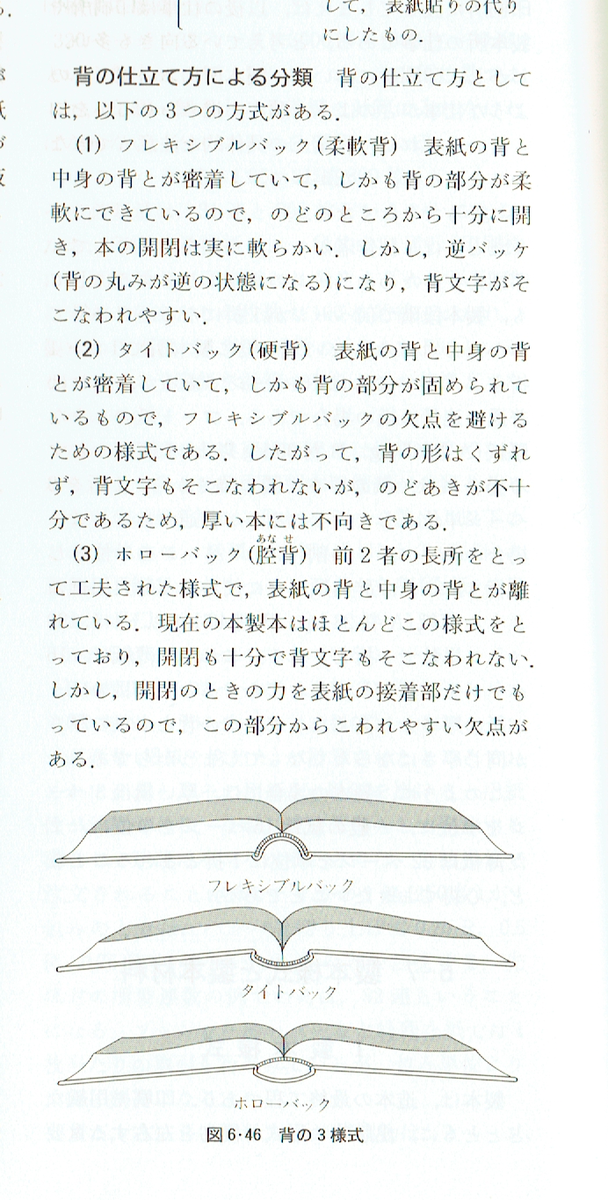 して，表紙貼りの代り
にしたもの．
背の仕立て方による分類　背の仕立て方として
は，以下の3つの方式がある．
(1)　フレキシブルバック(柔軟背)　表紙の背と
中身の背とが密着していて，しかも背の部分が柔
軟にできているので，のどのところから十分に開
き，本の開閉は実に軟らかい．しかし，逆バッケ
(背の丸みが逆の状態になる)になり，背文字がそ
こなわれやすい．
(2)　タイトバック(硬背)　表紙の背と中身の背
とが密着していて，しかも背の部分が固められて
いるもので，フレキシブルバックの欠点を避ける
ための様式である．したがって，背の形はくずれ
ず，背文字もそこなわれないが，のどあきが不十
分であるため，厚い本には不向きである．
あな　せ
(3)　ホローバック(腔背)　前2者の長所をとっ
て工夫された様式で，表紙の背と中身の背とが離
れている．現在の本製本はほとんどこの様式をと
っており，開閉も十分で背文字もそこなわれない．
しかし，開閉のときの力を表紙の接着部だけでも
っているので，この部分からこわれやすい欠点が
ある．
フレキシブルバック
タイトバック
ホローバック
図6・46　背の3様式